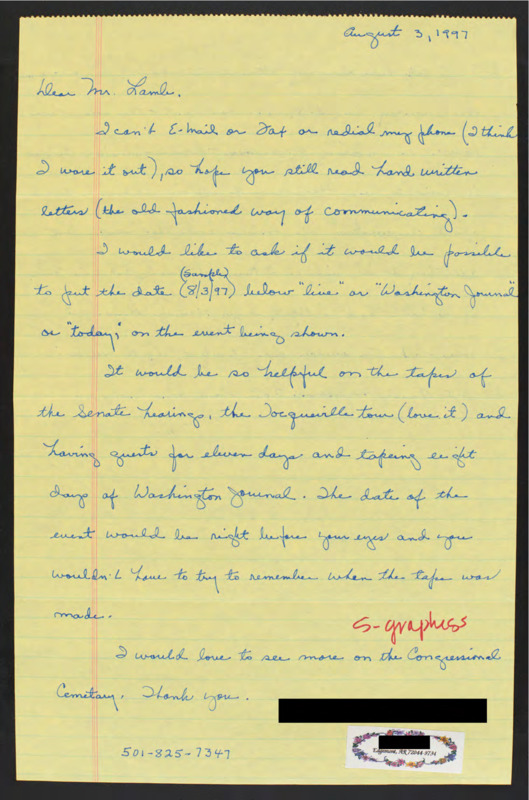 August 3, 1997
Dear Mr. Lamb.
I can't E-mail or Fax or redial my phone (I think
I wore it out), so hope you still read hand written
letters (the old fashioned way of communicating).
I would like to ask if it would be possible
(Sample)
to put the date (8/3/97) below "live" or "Washington Journal"
or "today", on the event being shown.
It would be so helpful on the tapes of
the Senate hearings, the Tocqueville tour (love it) and
having guests for eleven days and tapeing eight
days of Washington Journal. The date of the
event would be right before your eyes and you
wouldn't have to try to remember when the tape was
made.
S-graphics
I would love to see more on the Congressional
Cemetary. Thank you.
501-825-7347